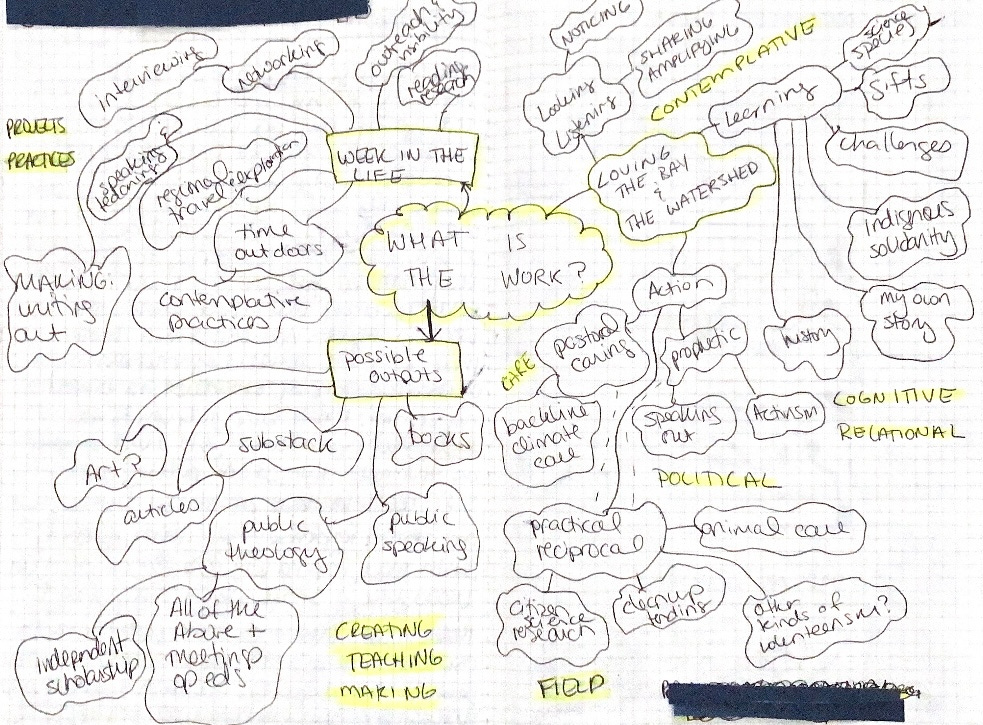 outreach &
visibility
NOTICING
SHARING
AMPLIFYING
science
species
interviewing
networking
reading
research
CONTEMPLATIVE
Looking
Listening
learning
gifts
PROJECTS
PRACTICES
WEEK IN THE
LIFE
challenges
speaking &
regional
travel & exploration
LOVING
THE BAY
&
THE WATERSHED
time
outdoors
WHAT IS
THE WORK?
indigenous
solidarity
MAKING:
writing
art
contemplative
practices
Action
my own
story
possible
outputs
CARE
pastoral
caring
prophetic
history
backline
climate
care
speaking
out
Activism
COGNITIVE
RELATIONAL
substack
books
Art?
POLITICAL
articles
public
theology
public
speaking
practical
reciprocal
animal care
independent
scholarship
All of the
Above +
meetings
op eds
citizen
science
research
cleanup
other
kinds of
volunteerism?
CREATING
TEACHING
MAKING
FIELD